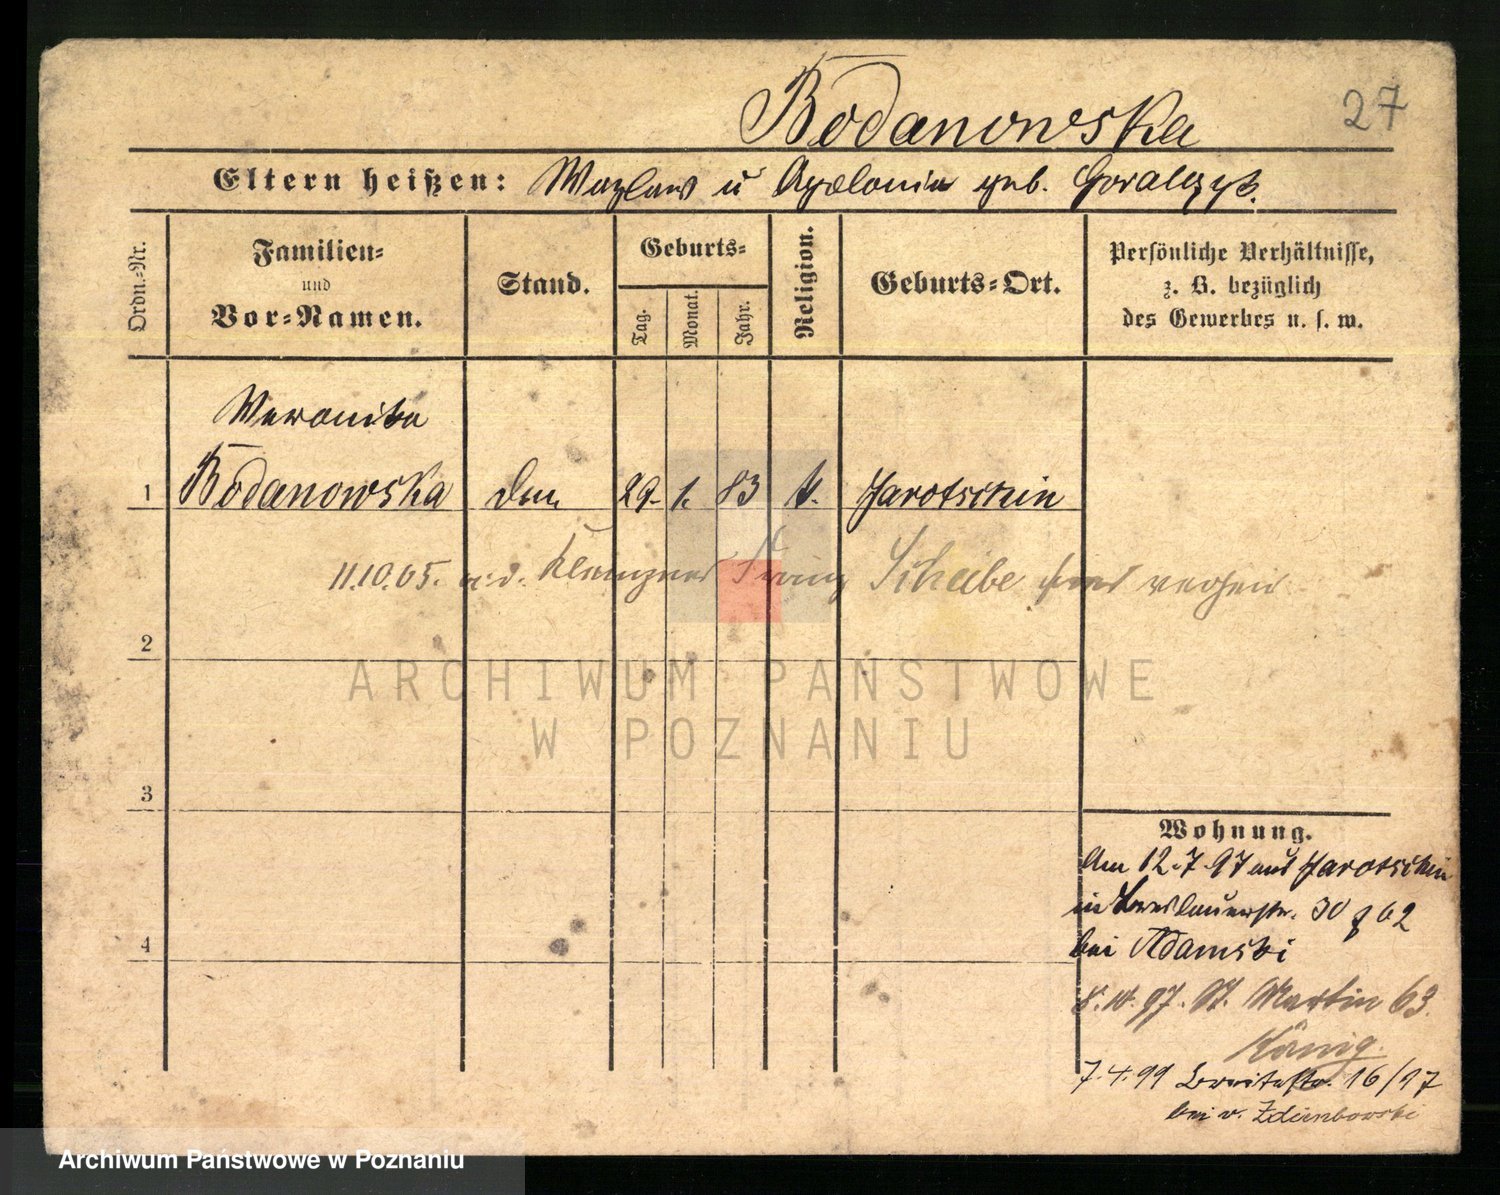 27
Bodanowska
Eltern heißen: Wazlaw u Apolonia geb. Goralczyk.
Ordn.-Nr.
Familien-
und
Vor-Namen.
Stand.
Geburts-
Tag.
Monat.
Jahr.
Religion.
Geburts-Ort.
Persönliche Verhältnisse,
z. B. bezüglich
des Gewerbes u. s. w.
Weronika
1 Bodanowska 29. 1. 83 k. Jarotschin
11.10.05. a. d. Klempner Franz Scheibe
2
ARCHIWUM PAŃSTWOWE
W POZNANIU
3
Wohnung.
Am 12.7.97 aus Jarotschin
in Breslauerstr. 30
bei Adamski
8.10.97. St. Martin 63.
König.
4
7.4.99 Breitestr. 16/17
bei v.
Archiwum Państwowe w Poznaniu